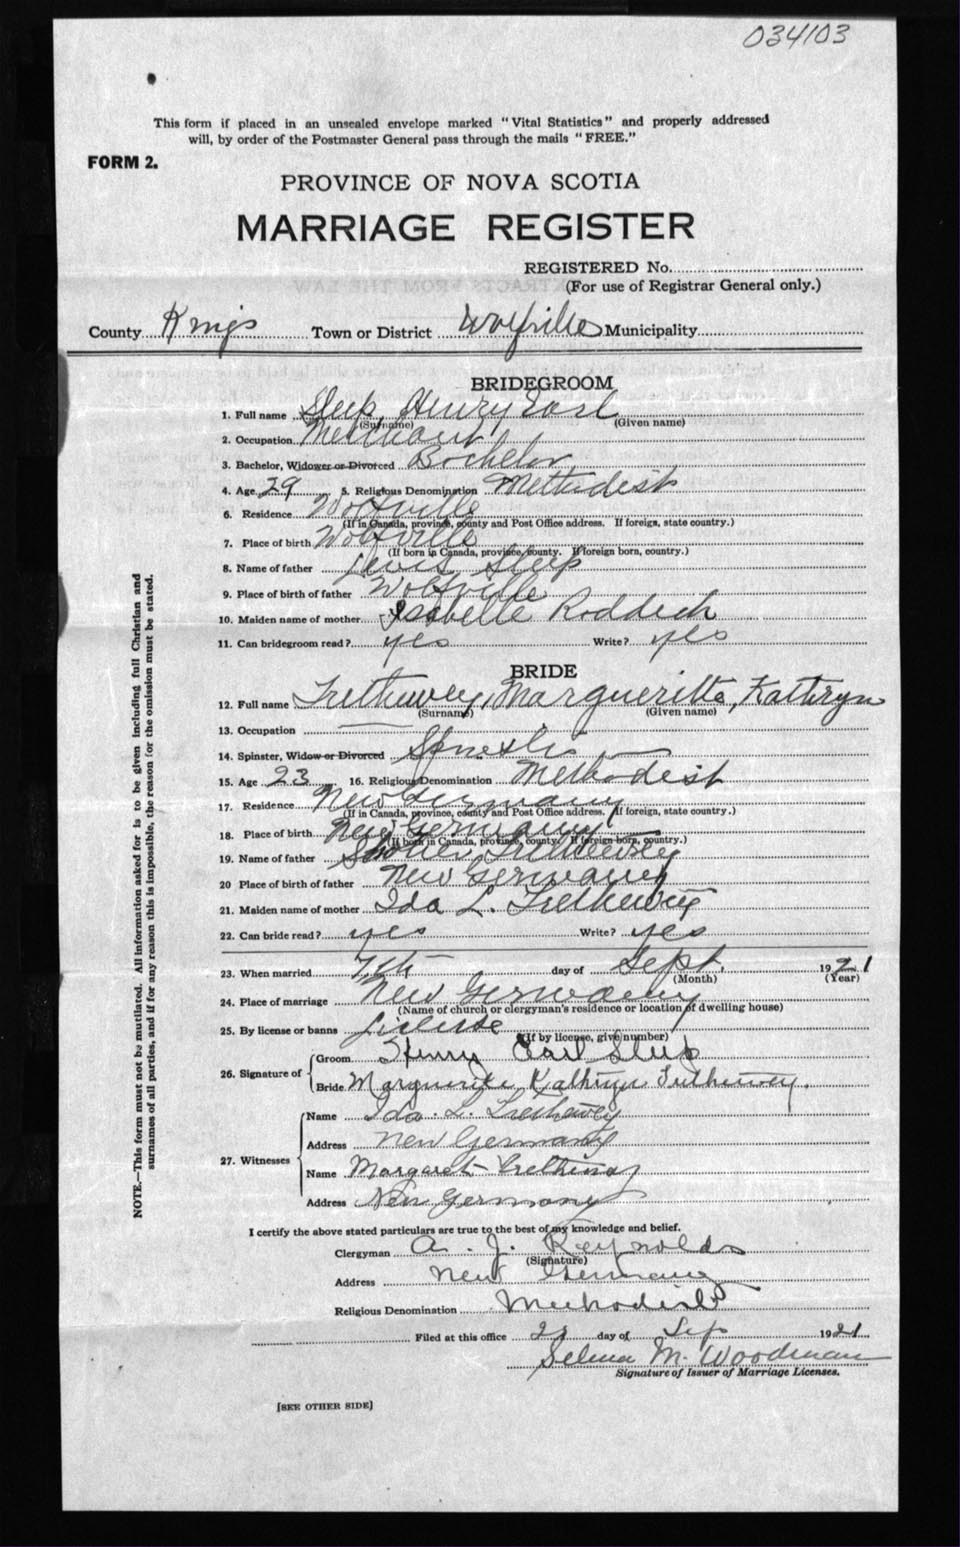 034103
This form if placed in an unsealed envelope marked "Vital Statistics" and properly addressed
will, by order of the Postmaster General pass through the mails "FREE."
FORM 2.
PROVINCE OF NOVA SCOTIA
MARRIAGE REGISTER
REGISTERED No.
(For use of Registrar General only.)
County Kings Town or District Wolfville Municipality
BRIDEGROOM
1. Full name Sleep, Henry Earl
(Surname) (Given name)
2. Occupation Merchant
3. Bachelor, Widower or Divorced Bachelor
4. Age 29 5. Religious Denomination Methodist
6. Residence Wolfville
(If in Canada, province, county and Post Office address. If foreign, state country.)
7. Place of birth Wolfville
(If born in Canada, province, county. If foreign born, country.)
8. Name of father Lewis Sleep
9. Place of birth of father Wolfville
10. Maiden name of mother Isabelle Roddick
11. Can bridegroom read? yes Write? yes
BRIDE
12. Full name Trethewey, Marguerite, Kathryn
(Surname) (Given name)
13. Occupation
14. Spinster, Widow or Divorced Spinster
15. Age 23 16. Religious Denomination Methodist
17. Residence New Germany
(If in Canada, province, county and Post Office address. If foreign, state country.)
18. Place of birth New Germany
(If born in Canada, province, county. If foreign born, country.)
19. Name of father Trethewey
20 Place of birth of father New Germany
21. Maiden name of mother Ida L. Trethewey
22. Can bride read? yes Write? yes
23. When married 7th day of Sept. 1921
(Month) (Year)
24. Place of marriage New Germany
(Name of church or clergyman's residence or location of dwelling house)
25. By license or banns License
(If by license, give number)
26. Signature of Groom Henry Earl Sleep
Bride Marguerite Kathryn Trethewey.
27. Witnesses Name Ida. L. Trethewey
Address New Germany
Name Margaret Trethewey
Address New Germany
I certify the above stated particulars are true to the best of my knowledge and belief.
Clergyman A. J. Reynolds
(Signature)
Address New Germany
Religious Denomination Methodist
Filed at this office day of Sep 1921
Selina M. Woodman
Signature of Issuer of Marriage Licenses.
[SEE OTHER SIDE]
NOTE.—This form must not be mutilated. All information asked for is to be given including full Christian and
surnames of all parties, and if for any reason this is impossible, the reason for the omission must be stated.